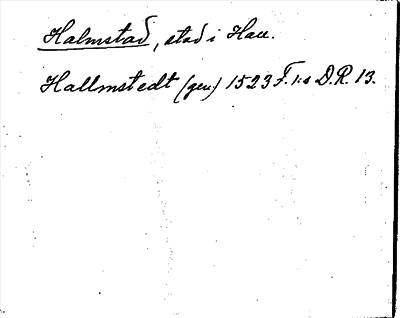 Halmstad, stad i Hall.
Hallmstedt (gen) 1523 F.1:s D.R. 13.